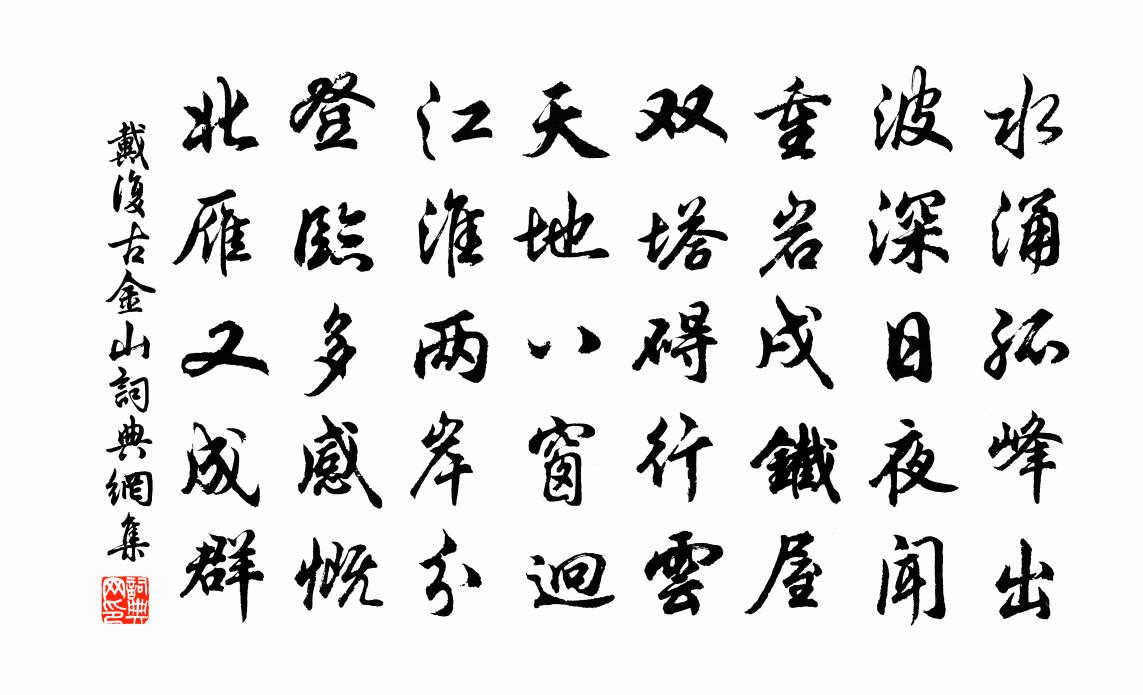 水涌孤峰出
波深日夜聞
重岩戍鐵屋
双塔碍行雲
天地八窗迥
江淮两岸分
登臨多感慨
北雁又成群
戴復古金山詞典網集
詞典
网印